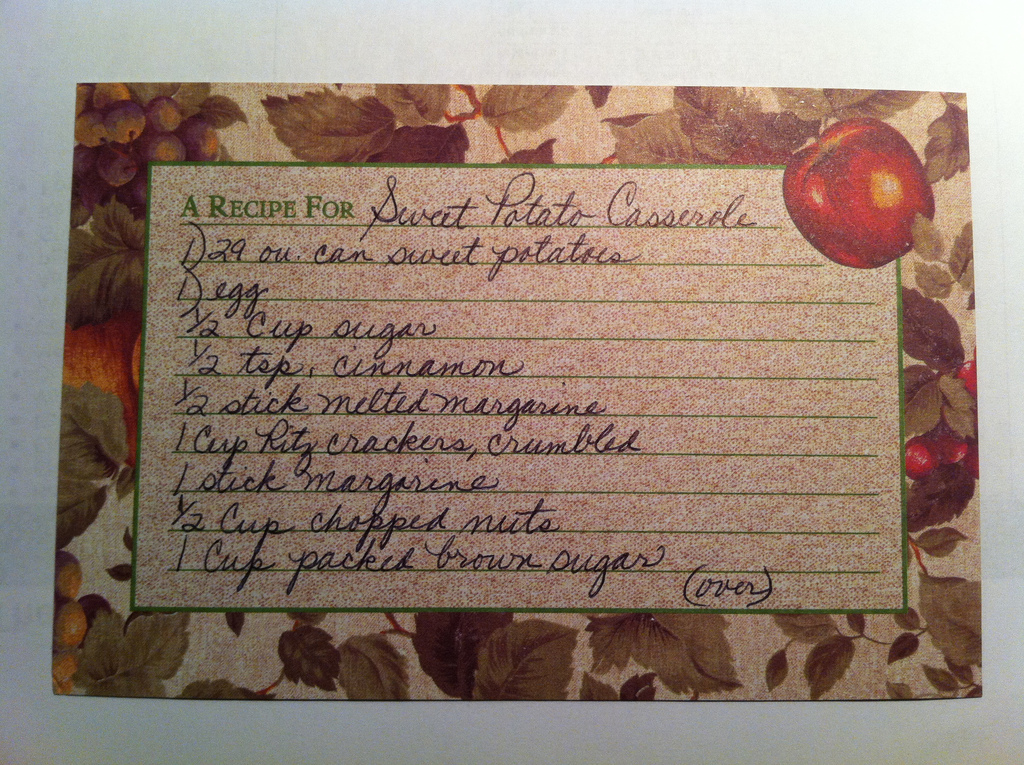 A RECIPE FOR Sweet Potato Casserole
1) 29 ou. can sweet potatoes
1) egg
1/2 Cup sugar
1/2 tsp. cinnamon
1/2 stick melted margarine
1 Cup Ritz crackers, crumbled
1 stick margarine
1/2 Cup chopped nuts
1 Cup packed brown sugar
(over)